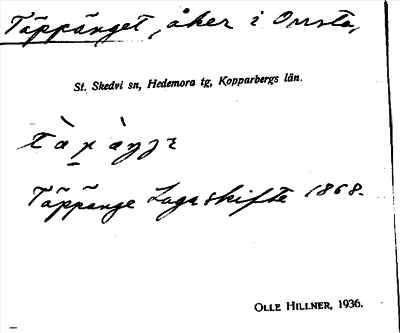 Täppänget, åker i Orrsta,
St. Skedvi sn, Hedemora tg, Kopparbergs län.
Täppänge Laga skifte 1868.
OLLE HILLNER, 1936.